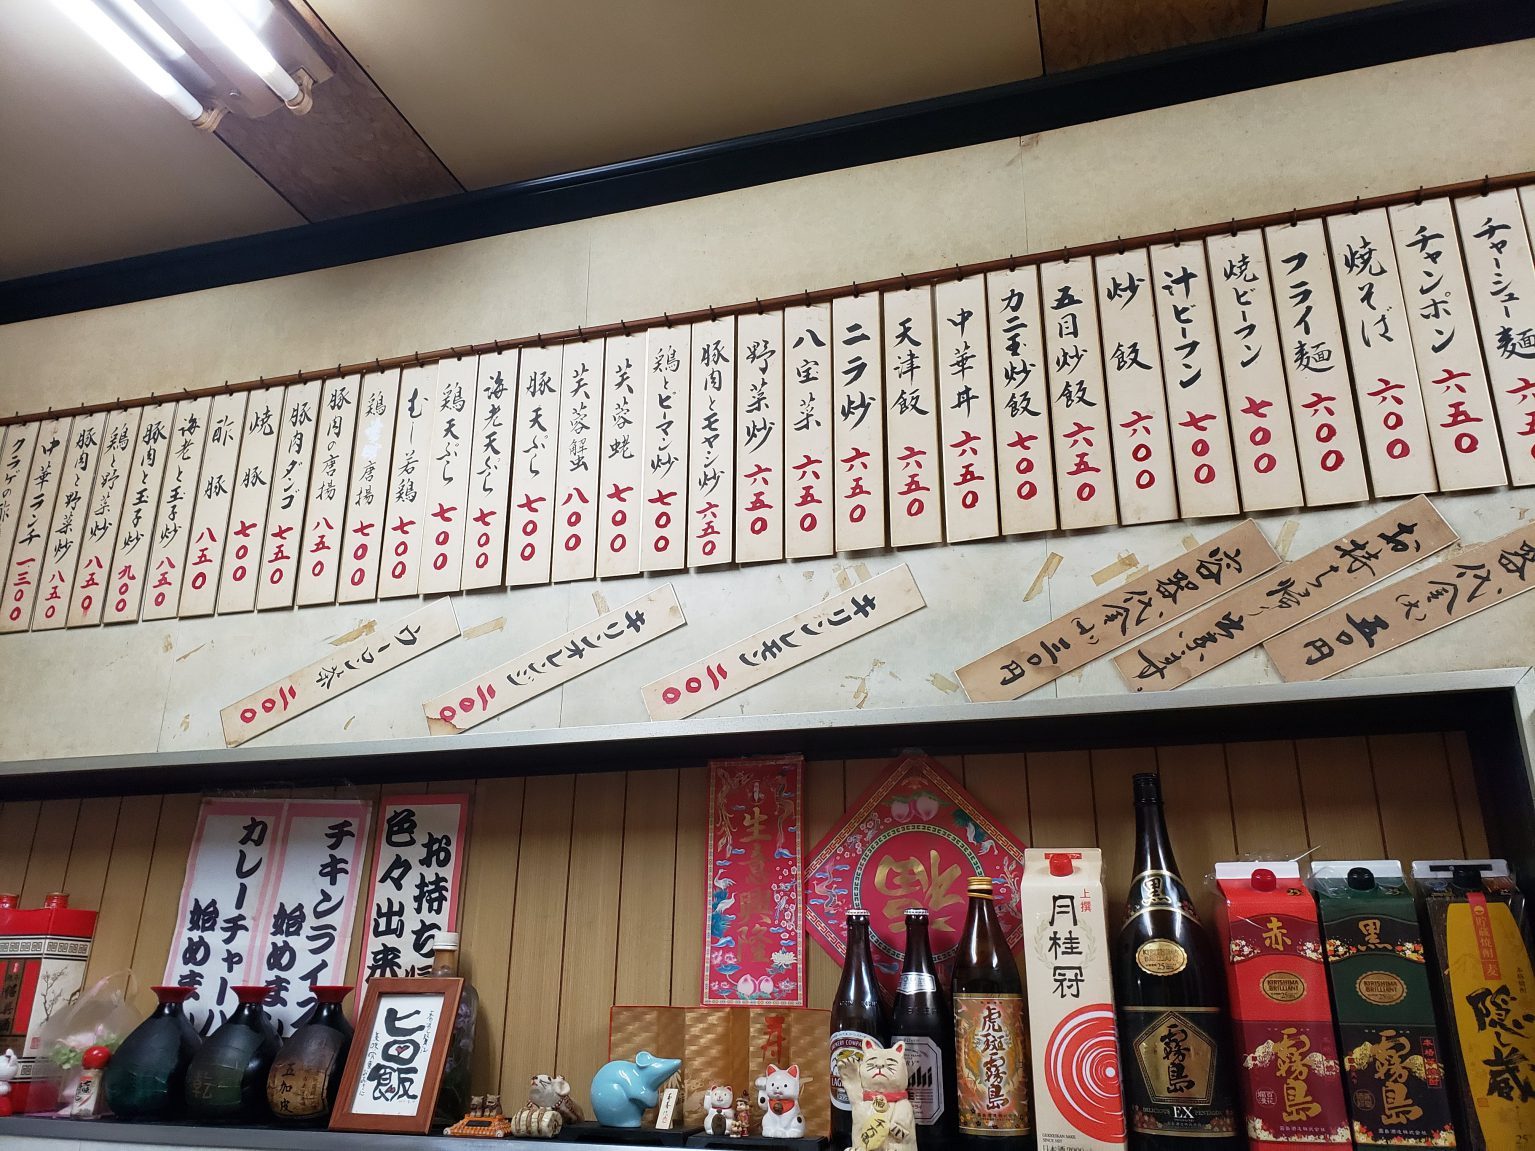 チャーシュー麺
チャンポン 六五〇
焼そば 六〇〇
フライ麺 六〇〇
焼ビーフン 七〇〇
汁ビーフン 七〇〇
炒飯 六〇〇
五目炒飯 六五〇
カニ玉炒飯 七〇〇
中華丼 六五〇
天津飯 六五〇
ニラ炒 六五〇
八宝菜 六五〇
野菜炒 六五〇
豚肉とモヤシ炒 六五〇
鶏とピーマン炒 七〇〇
芙蓉蛯 七〇〇
芙蓉蟹 八〇〇
豚天ぷら 七〇〇
海老天ぷら 七〇〇
鶏天ぷら 七〇〇
むし若鶏 七〇〇
鶏唐揚 七〇〇
豚肉の唐揚 八五〇
豚肉ダンゴ 七五〇
焼豚 七〇〇
酢豚 八五〇
海老と玉子炒 八五〇
豚肉と玉子炒 九〇〇
鶏と野菜炒 八五〇
豚肉と野菜炒 八五〇
中華ランチ 一三〇〇
クラゲの酢
器代金(大)五〇円
お持ち帰り出来ます
容器代金(小)三〇円
キリンレモン 二〇〇
キリンオレンジ 二〇〇
ウーロン茶 二〇〇
お持ち帰
色々出来
チキンライス
始めま
カレーチャーハ
始めま
ヒロ飯
五加皮
生意興隆
福
寿
Asahi
虎斑霧島
上撰
月桂冠
黒
霧島
EX
赤
KIRISHIMA
BRILLIANT
霧島
黒
KIRISHIMA
BRILLIANT
本格焼酎
霧島
隠し蔵
千万両